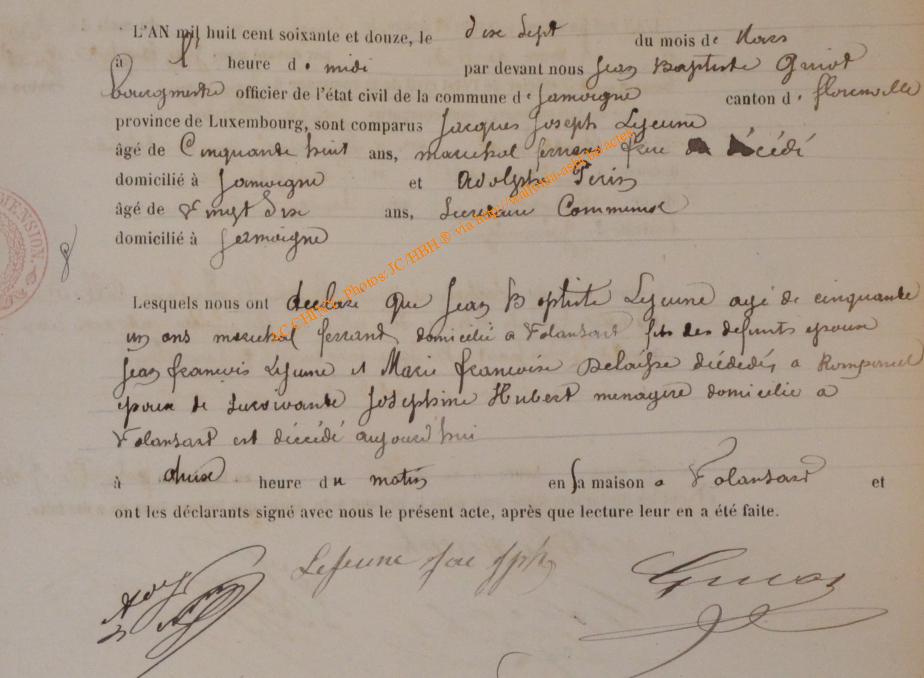 L'AN mil huit cent soixante et douze, le dixe Sept du mois de Mars
à l' heure d. midi par devant nous Jean Baptiste Guiot
bourgmestre officier de l'état civil de la commune d. Jamoigne canton d. florenville
province de Luxembourg, sont comparus Jacques Joseph Lejeune
âgé de Cinquante huit ans, marechal ferrant frere décédé
domicilié à Jamoigne et Adolphe Perin
âgé de Vingt dixe ans, Secretaire Communal
domicilié à Jamoigne
Lesquels nous ont declaré que Jean Baptiste Lejeune agé de cinquante
un ans marechal ferrant, domicilié a Volansart fils des defunts epoux
Jean françois Lejeune et Marie françoise décédés a Romponcel
epoux de Survivante Josephine Hubert menagère domicilie a
Volansart est décédé aujourd'hui
à heure du matin en sa maison a Volansart et
ont les déclarants signé avec nous le présent acte, après que lecture leur en a été faite.
Lejeune Guiot
DIMENSION.
Photos: JC/HBH ® via http://